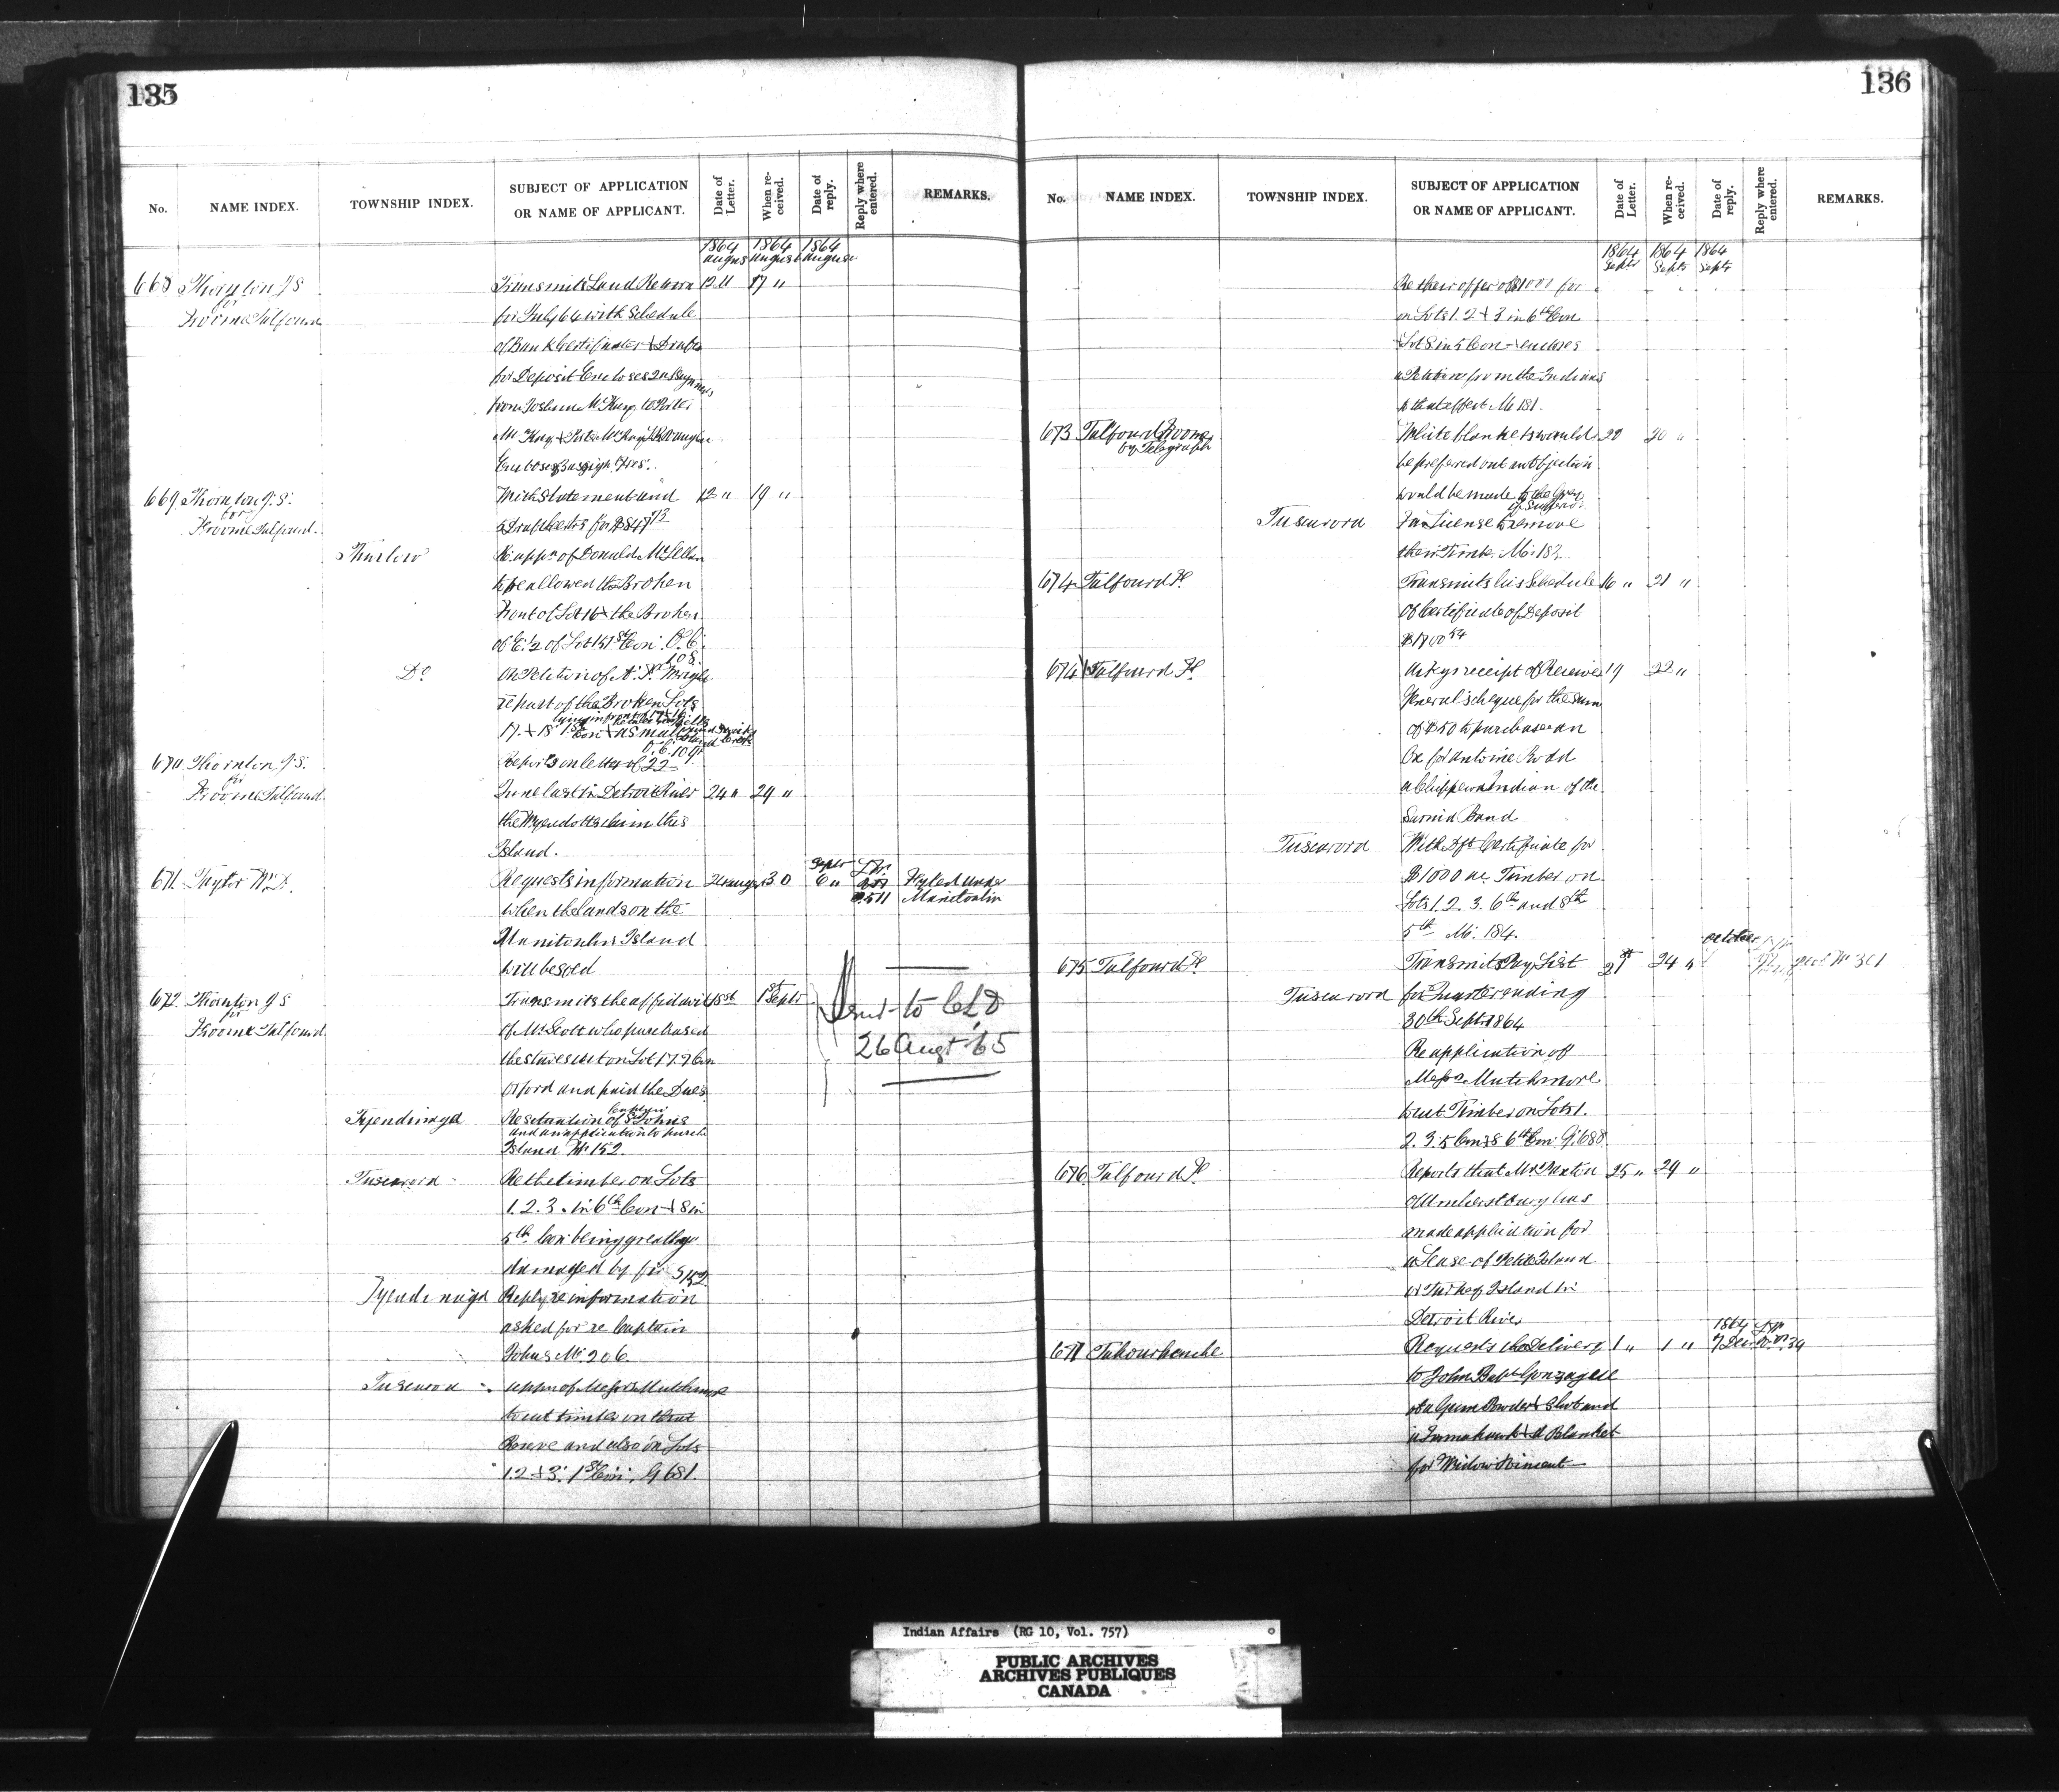 135
No.
NAME INDEX.
TOWNSHIP INDEX.
SUBJECT OF APPLICATION
OR NAME OF APPLICANT.
Date of Letter.
When received.
Date of reply.
Reply where entered.
REMARKS.
1864 1864 1864
August August August
668 Thornton J S Transmits Land Return 12 " 17 "
for
Froome Talfourd for July 64 with Schedule
of Bank Certificates & Drafts
for Deposit Encloses 2 Assignments
from Joshua McKay to Peter
McKay & Peter McKay to
669 Thornton J. S. With Statement and 12 " 19 "
for
Froome Talfourd.
Thurlow Re appn of Donald McLellan
to be allowed the Broken
Front of Lot 16 & the Broken
of E. ½ of Lot 15 1st Con. O. C.
108.
Do On Petition of A. F. Wright
re part of the Broken Lots
17. & 18 1st Con
O. C. 109.
670 Thornton J. S. Reports on letter of 22
for
Froome Talfourd June last in Detroit River 24 " 29 "
the Wyandotts claim this
Island.
671. Taylor W. D. Requests information 26 August 30 Septr 6 " Fyled under
when the Lands on the 511 Manitoulin
Manitoulin Island
will be sold
672. Thornton J S Transmits the affidavit 1st Septr
for
Froome Talfourd of Mr Scott who purchased
the staves cut on Lot 17. 9 Con
Orford and paid the Dues
Sent to CLD
26 Augt 65
Tyendinaga Re situation of Captain Johns
and an application to purch.
Island M. 152.
Tuscarora Re the timber on Lots
1. 2. 3. in 6th Con & 8 in
5th Con being greatly
damaged by fire
Tyendinaga Reply re information
asked for re Captain
Johns M. 206
Tuscarora appn of Messrs Mutchmore
to cut timber on that
Reserve and also on Lots
1. 2 & 3. 1st Con. G 681.
136
No.
NAME INDEX.
TOWNSHIP INDEX.
SUBJECT OF APPLICATION
OR NAME OF APPLICANT.
Date of Letter.
When received.
Date of reply.
Reply where entered.
REMARKS.
1864 1864 1864
Septr Septr Septr
Re their offer of $1000 for
on Lots 1. 2 & 3 in 6th Con
& Lot 8 in 5 Con & encloses
a Petition from the Indians
to that effect M 181.
673 Talfourd Froome White blankets would 20 20 "
by Telegraph be preferred but no objection
would be made to the Grey
Tuscarora For License to remove
their Timber M. 182
674 Talfourd F. Transmits his Schedule 16 " 21 "
of Certificate of Deposit
674½ Talfourd F. Ackgs receipt of Receiver 19 22 "
General's cheque for the sum
of $50 to purchase an
Ox for Antoine Rodd
a Chippewa Indian of the
Sarnia Band
Tuscarora With Dft Certificate for
$1000 ac. Timber on
Lots 1. 2. 3. 6th and 8th
5th M. 184.
October
675 Talfourd F. Transmits Pay List 21st 24 "
Tuscarora for Quarter ending
30th Septr 1864
Re application of
Messrs Mutchmore
to cut Timber on Lots 1.
2. 3. 5 Con & 8 6th Con. G. 688
676 Talfourd F. Reports that Mr Paxton 25 " 29 "
of Amherstburg has
made application for
a Lease of Petite Island
or Turkey Island in
Detroit River
1864
677 Tahourhenche Requests the Delivery 1 " 1 " 7 Decr
to John Bapt Gonzague
of a Gun Powder & Shot and
a Tomahawk & a Blanket
for Widow Vincent
Indian Affairs (RG 10, Vol. 757)
PUBLIC ARCHIVES
ARCHIVES PUBLIQUES
CANADA